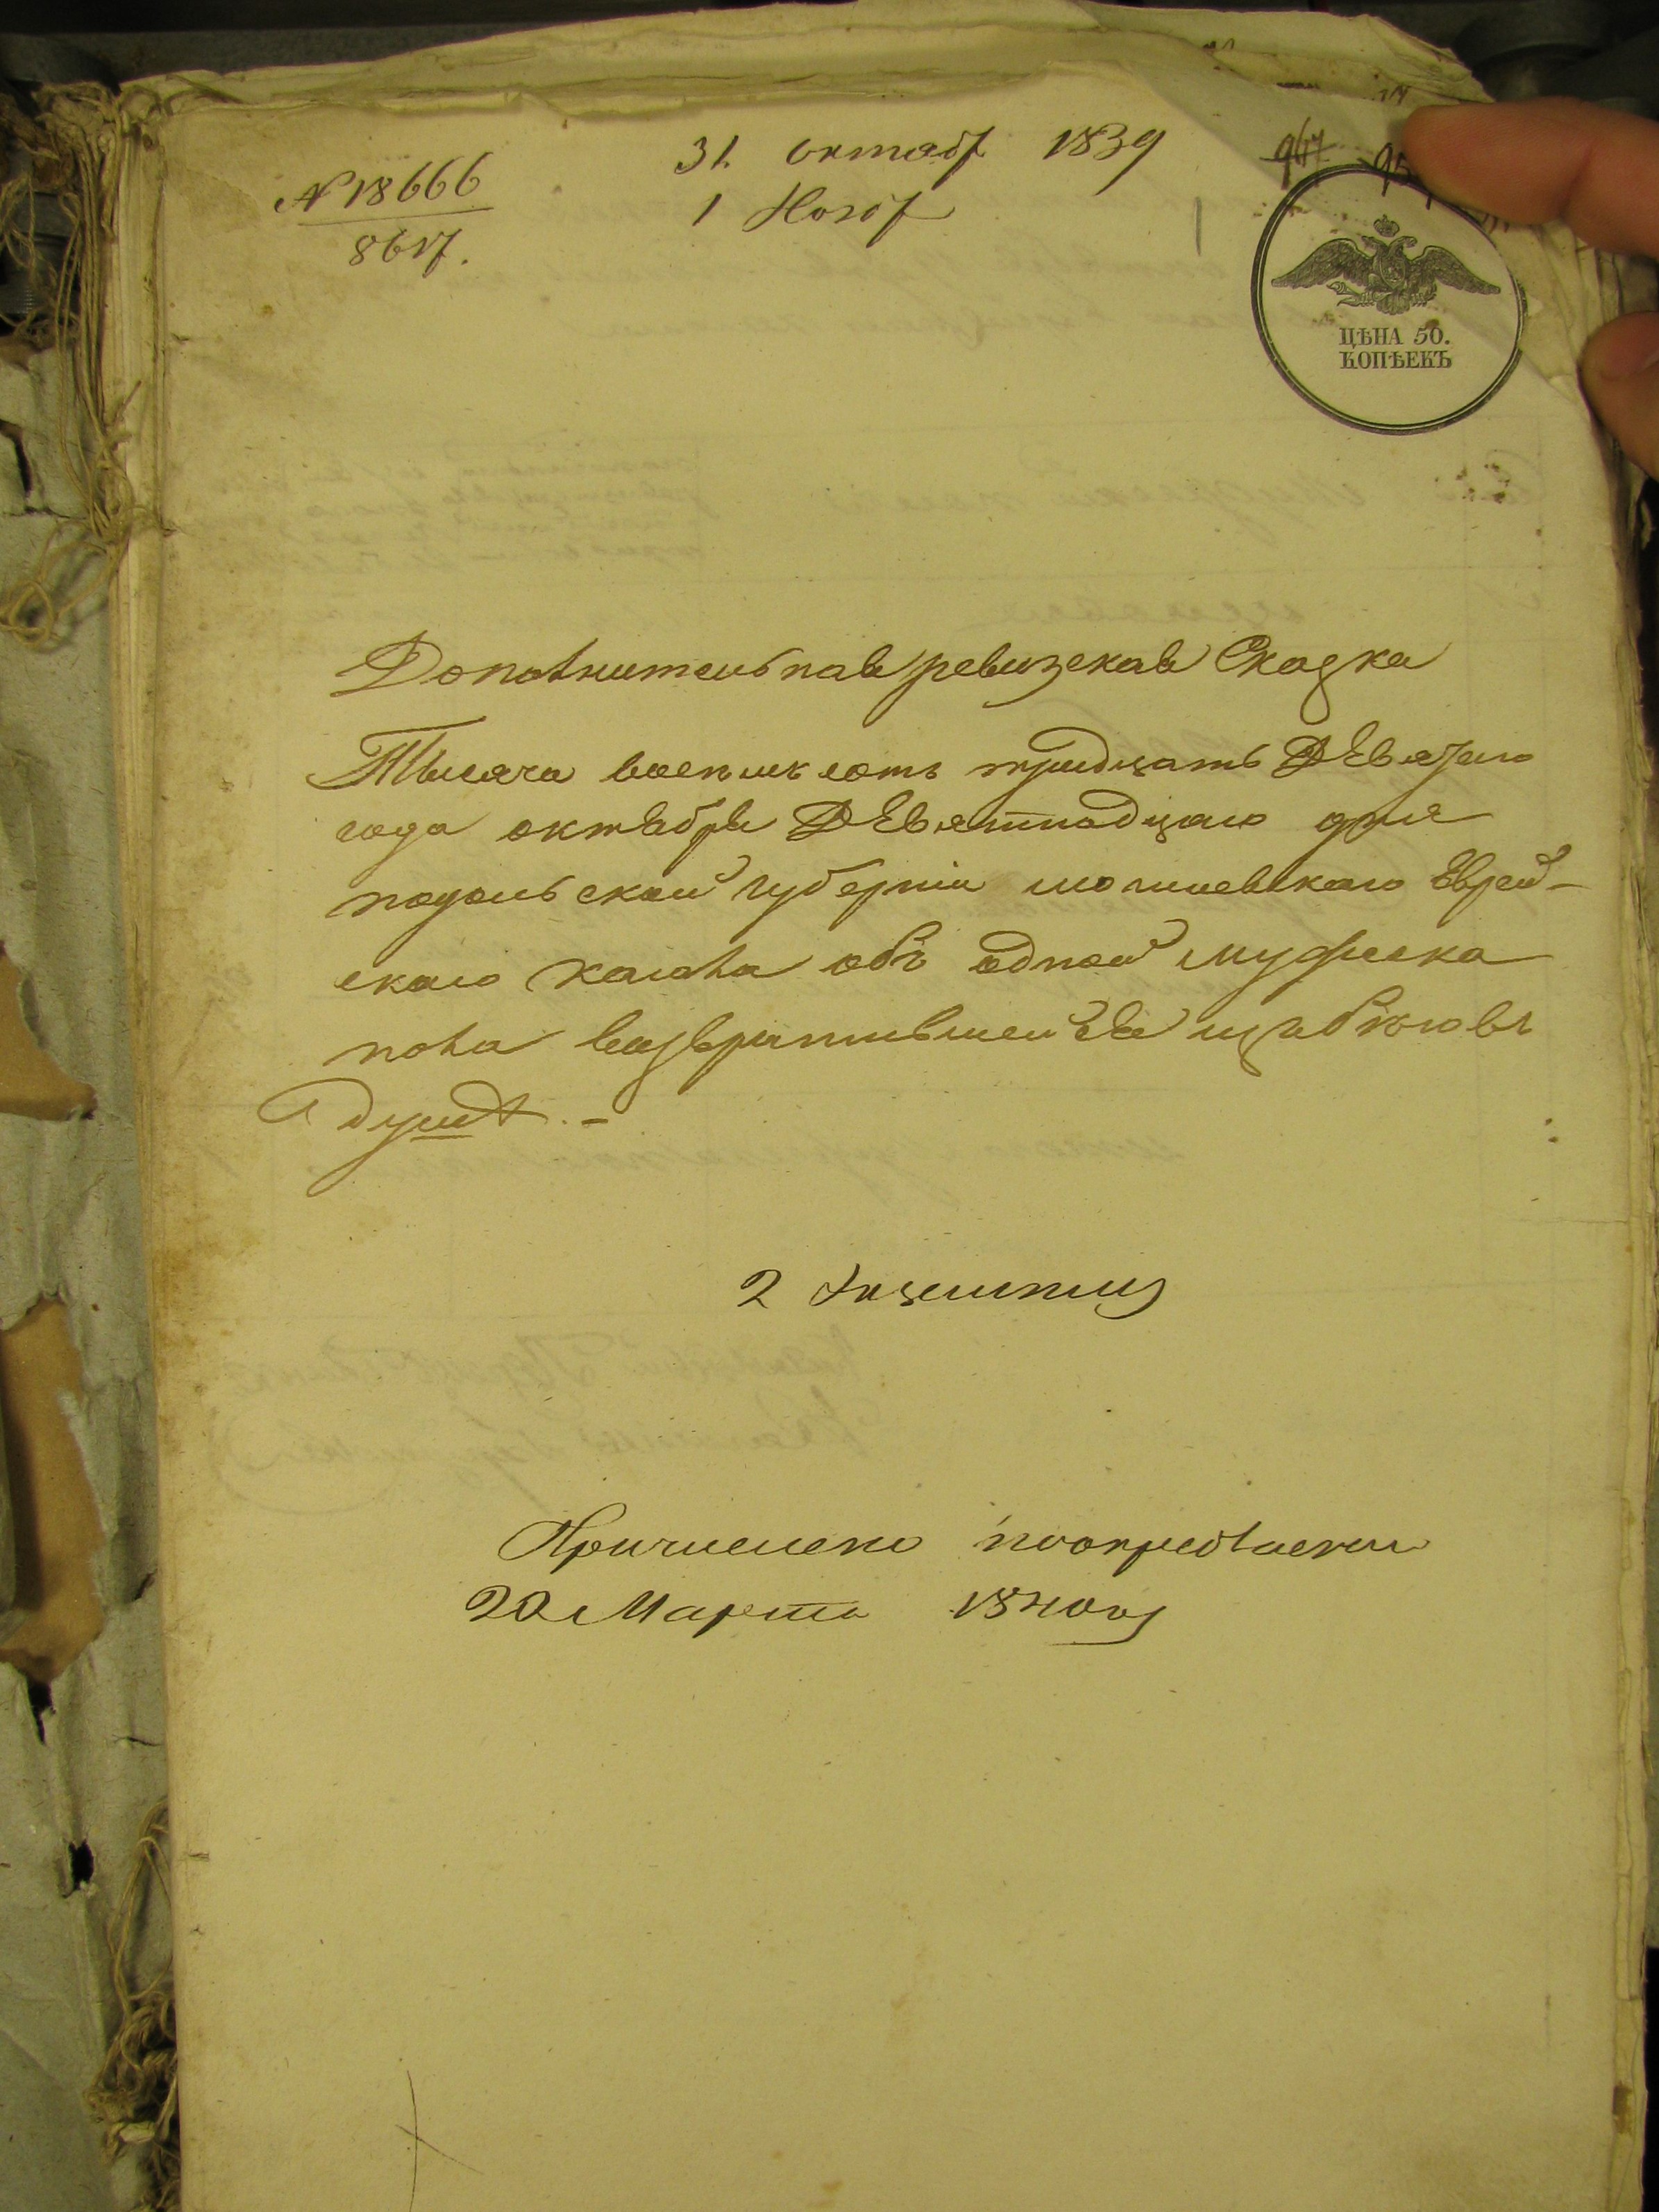 № 18666
8617.
31. октабр 1839
1 Нояб
947
ЦѢНА 50.
КОПѢЕКЪ
Дополнительная ревизская Сказка
Тысяча восемьсотъ тридцать Девятаго
года октября Девятнадцаго дня
подольской губерніи могилевскаго Еврей-
скаго кагала объ одной мужеска
пола возвратившейся изъ бѣговъ
душѣ. –
2
Причислено
20 Марта 1840